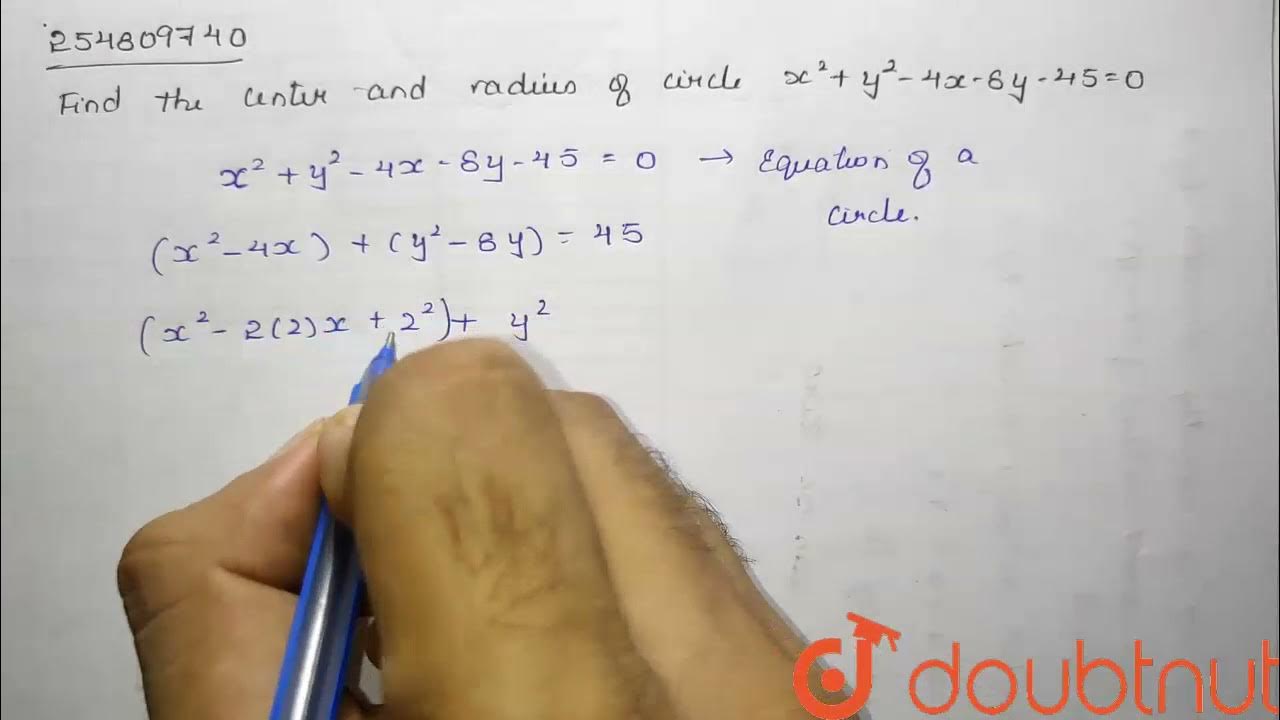 254809740
Find the center and radius of circle x² + y² - 4x - 8y - 45 = 0
x² + y² - 4x - 8y - 45 = 0 → Equation of a
circle.
(x² - 4x) + (y² - 8y) = 45
(x² - 2(2)x + 2²) + y²
doubtnut